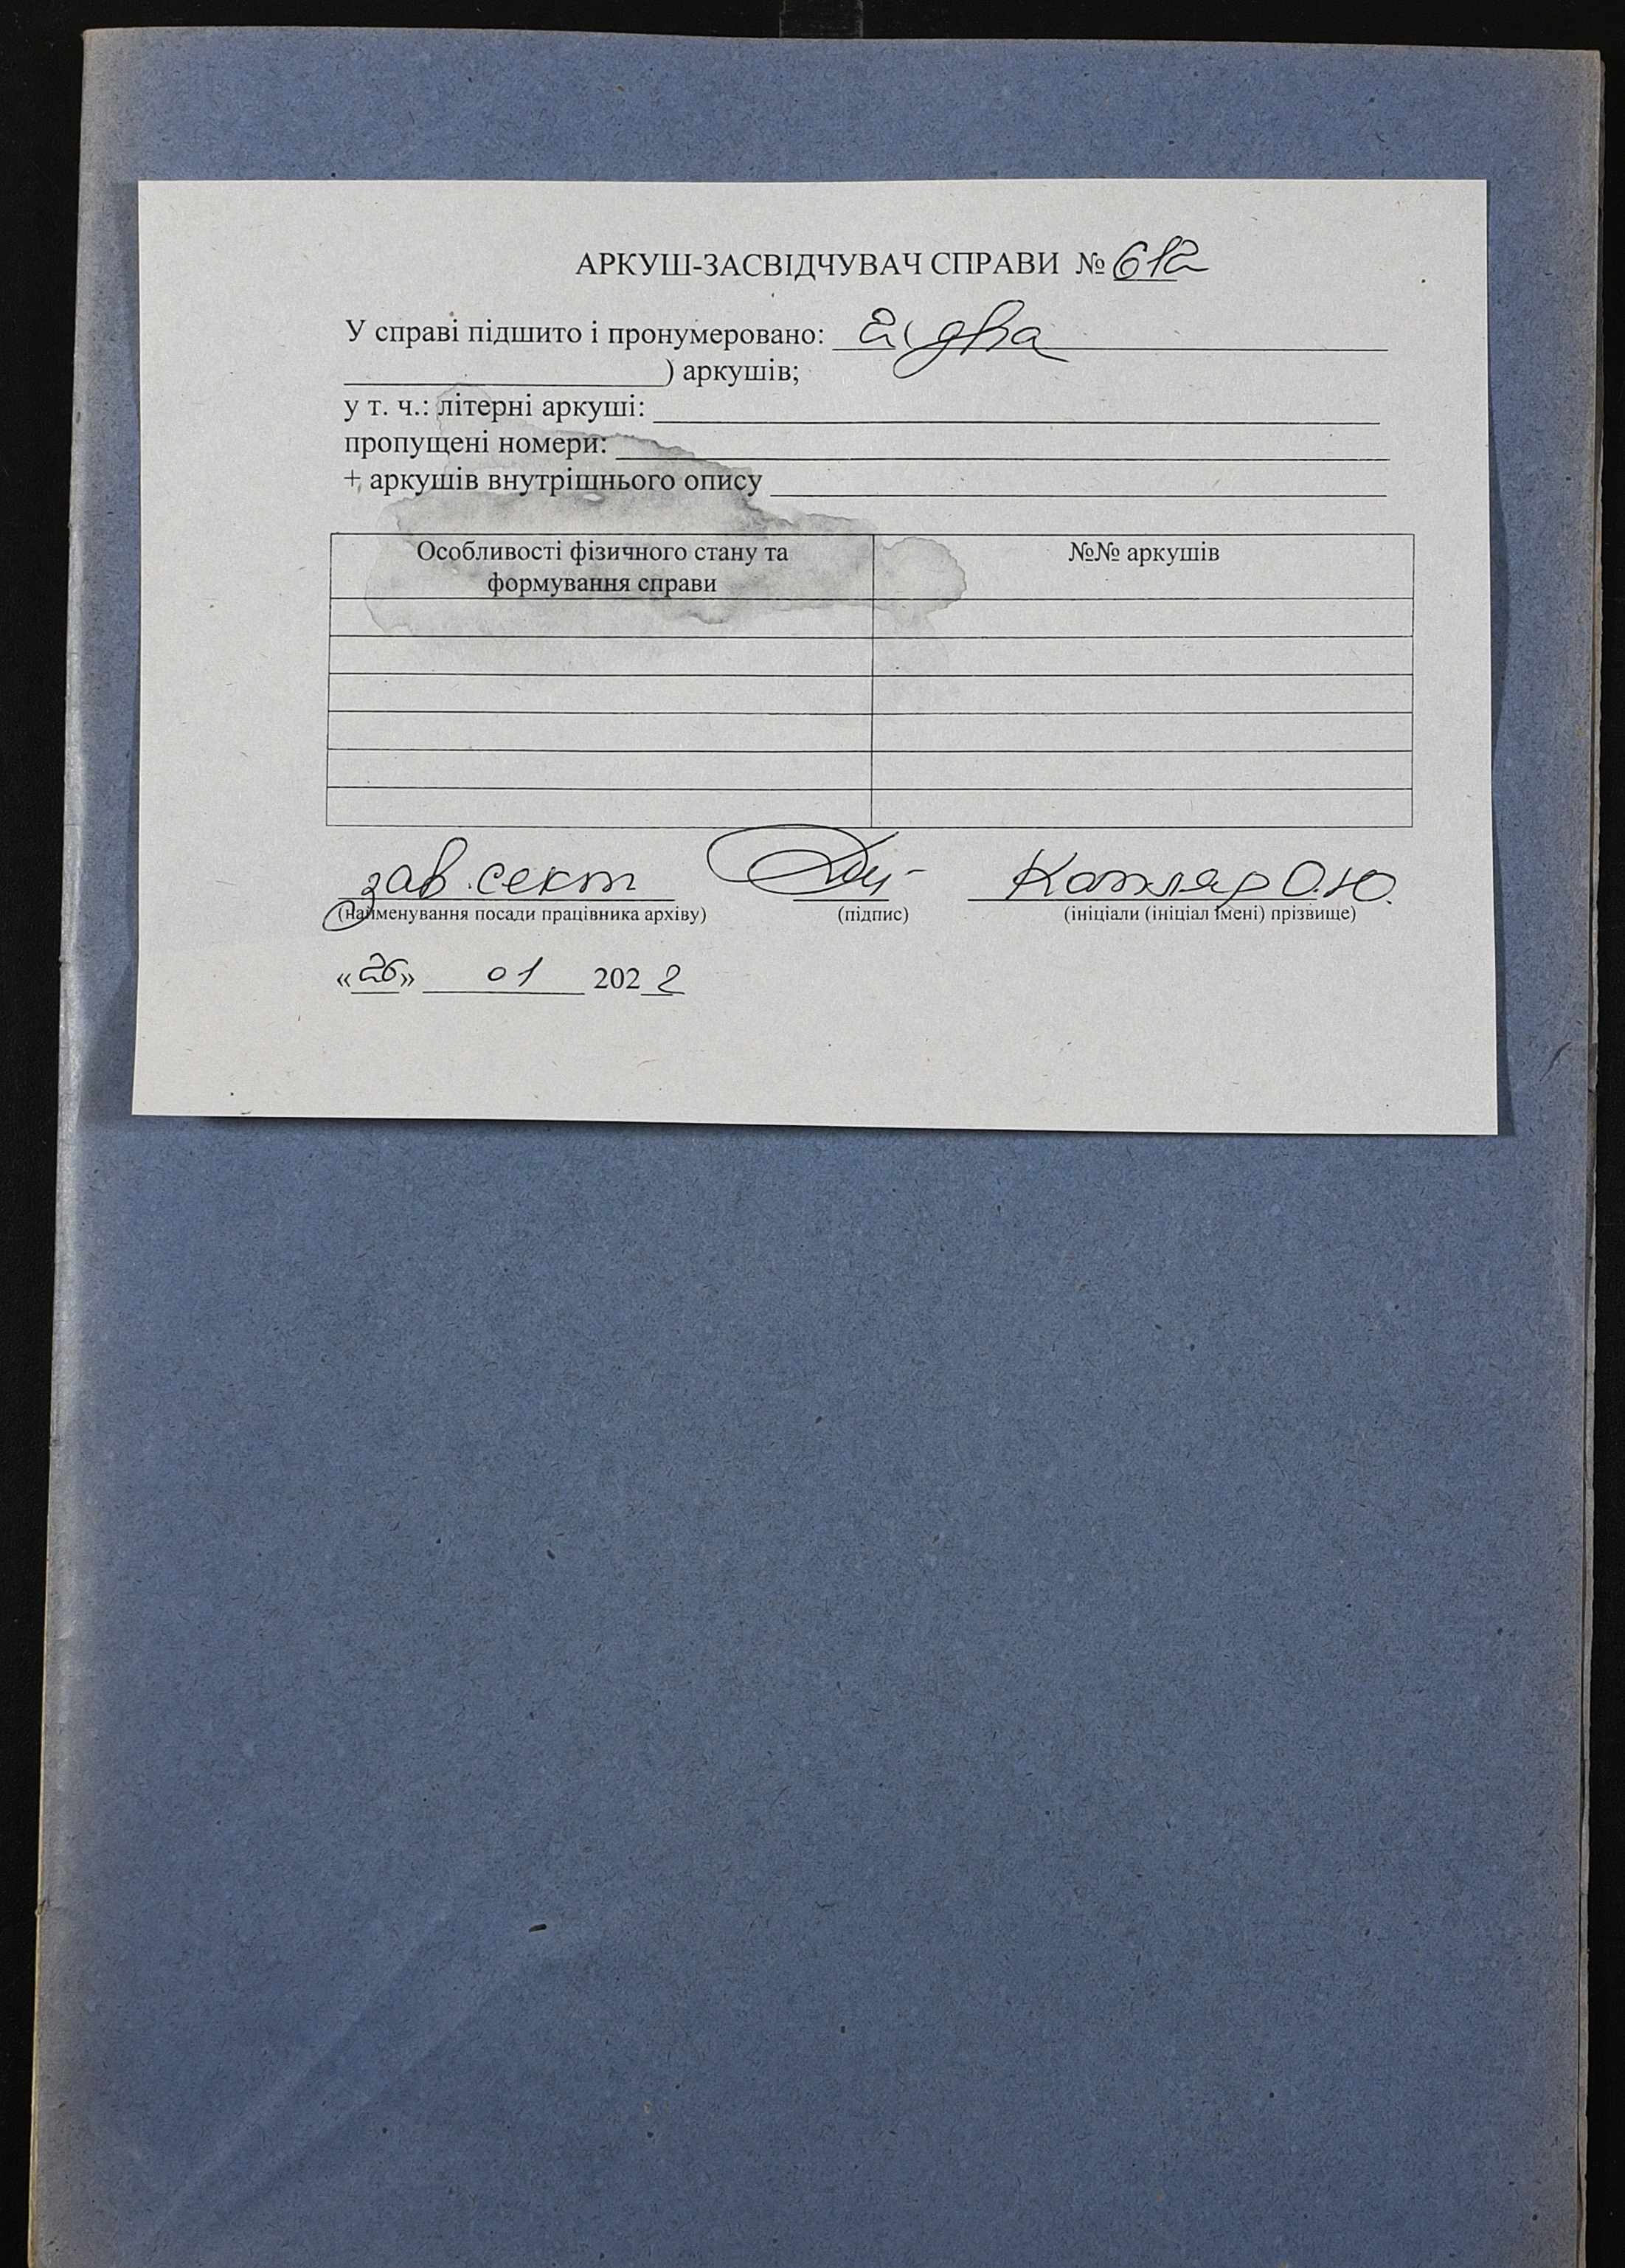 АРКУШ-ЗАСВІДЧУВАЧ СПРАВИ № 612
У справі підшито і пронумеровано: 2 ( два
) аркушів;
у т. ч.: літерні аркуші:
пропущені номери:
+ аркушів внутрішнього опису
Особливості фізичного стану та формування справи №№ аркушів
зав. сект Котляр О.Ю.
(найменування посади працівника архіву) (підпис) (ініціали (ініціал імені) прізвище)
«26» 01 2022